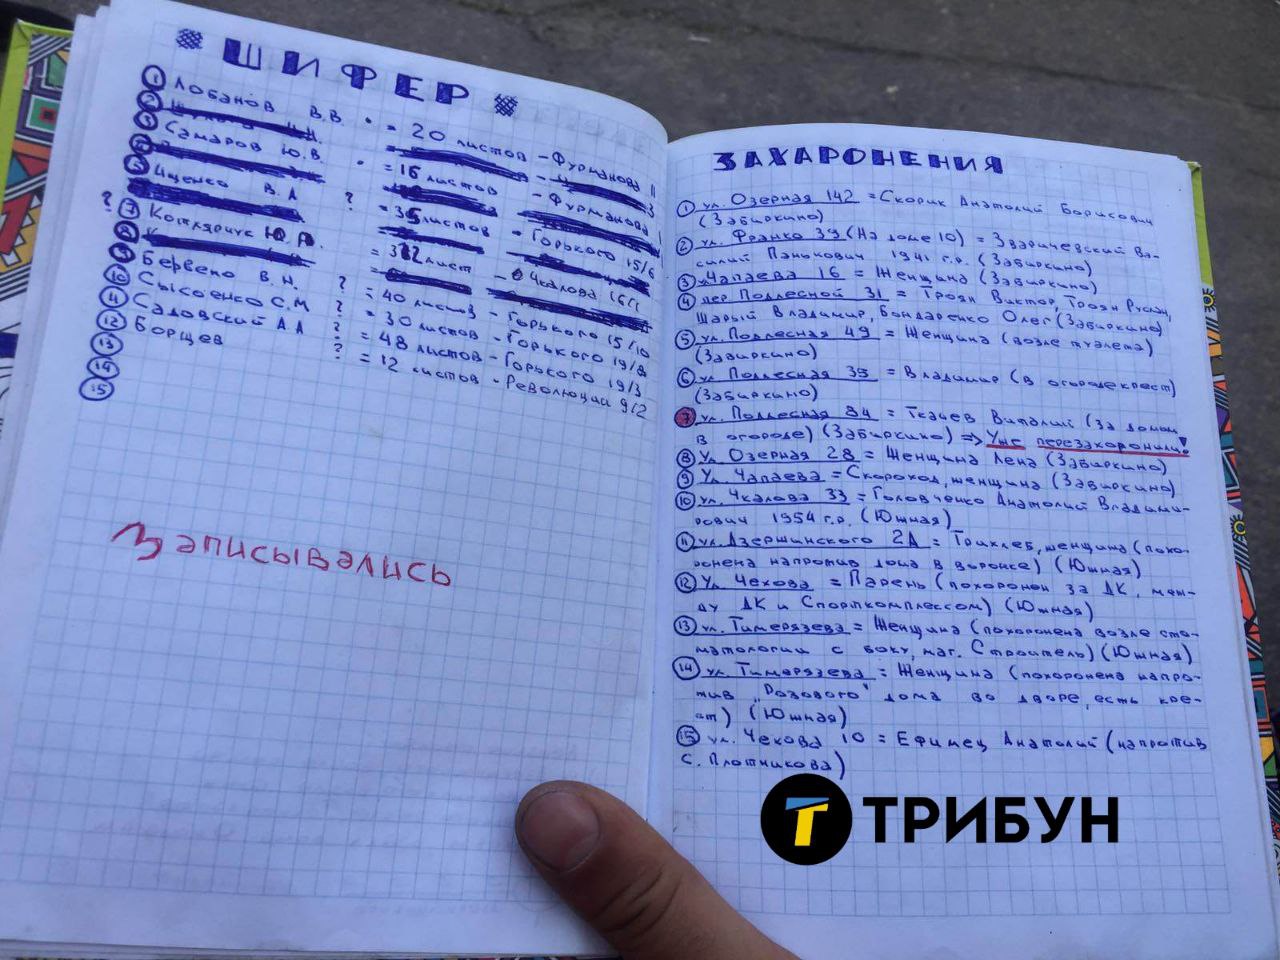 ШИФЕР
① Лобанов В.В. • = 20 листов - Фурманова 11
②
③ Самаров Ю.В. • = 16 листов - Фурманова
Ищенко В.А ? = 35 листов - Горького 15/6
? ⑦ Котлярик Ю.А. = 32 лист - Чкалова 16
⑨ Бервено В.Н. ? = 40 листов - Горького 15/10
⑩ Сысоенко С.М ? = 30 листов - Горького 19/8
⑪ Садовский А.А ? = 48 листов - Горького 19/3
⑫ Борщев ? = 12 листов - Революции 9/2
⑬
⑭
⑮
Записывались
ЗАХАРОНЕНИЯ
① ул. Озерная 142 = Скорик Анатолий Борисович
(Забиркино)
② ул. Франко 39 (На доме 10) = Зваричевский Ва-
силий Панькович 1941 г.р. (Забиркино)
③ ул. Чапаева 16 = Женщина (Забиркино)
④ пер Подлесной 31 = Троян Виктор, Троян Руслан,
Шарый Владимир, Бондаренко Олег (Забиркино)
⑤ ул. Подлесная 49 = Женщина (возле туалета)
(Забиркино)
⑥ ул Подлесная 35 = Владимир (в огороде крест)
(Забиркино)
⑦ ул. Подлесная 84 = Ткачев Виталий (за домом
в огороде) (Забиркино) => Уже перезахоронили!
⑧ ул. Озерная 28 = Женщина Лена (Забиркино)
⑨ ул. Чапаева = Скороход, женщина (Забиркино)
⑩ ул. Чкалова 33 = Головченко Анатолий Владими-
рович 1954 г.р. (Южная)
⑪ ул. Дзержинского 2А = Трихлеб, женщина (похо-
ронена напротив дома в воронке) (Южная)
⑫ ул. Чехова = Парень (похоронен за ДК, меж-
ду ДК и Спорткомплексом) (Южная)
⑬ ул. Тимерязева = Женщина (похоронена возле сто-
матологии с боку, маг. Строитель) (Южная)
⑭ ул. Тимерязева = Женщина (похоронена напро-
тив „Розового" дома во дворе, есть кре-
ст) (Южная)
⑮ ул. Чехова 10 = Ефимец Анатолий (напротив
с. Плотникова)
ТРИБУН